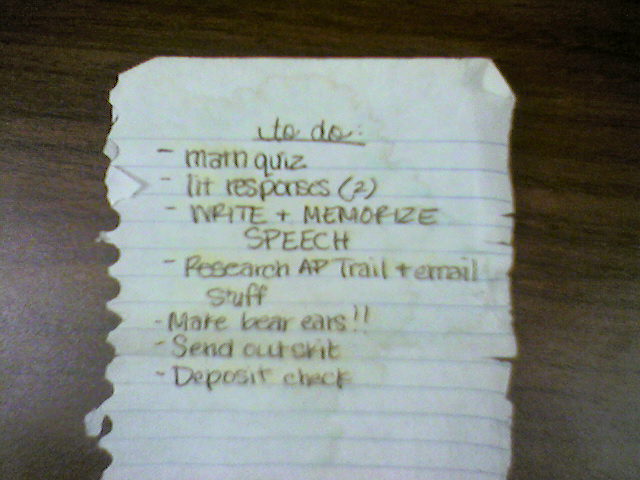 to do:
- math quiz
- lit responses (2)
- WRITE + MEMORIZE
SPEECH
- Research AP Trail + email
stuff
- Make bear ears!!
- Send out skit
- Deposit check